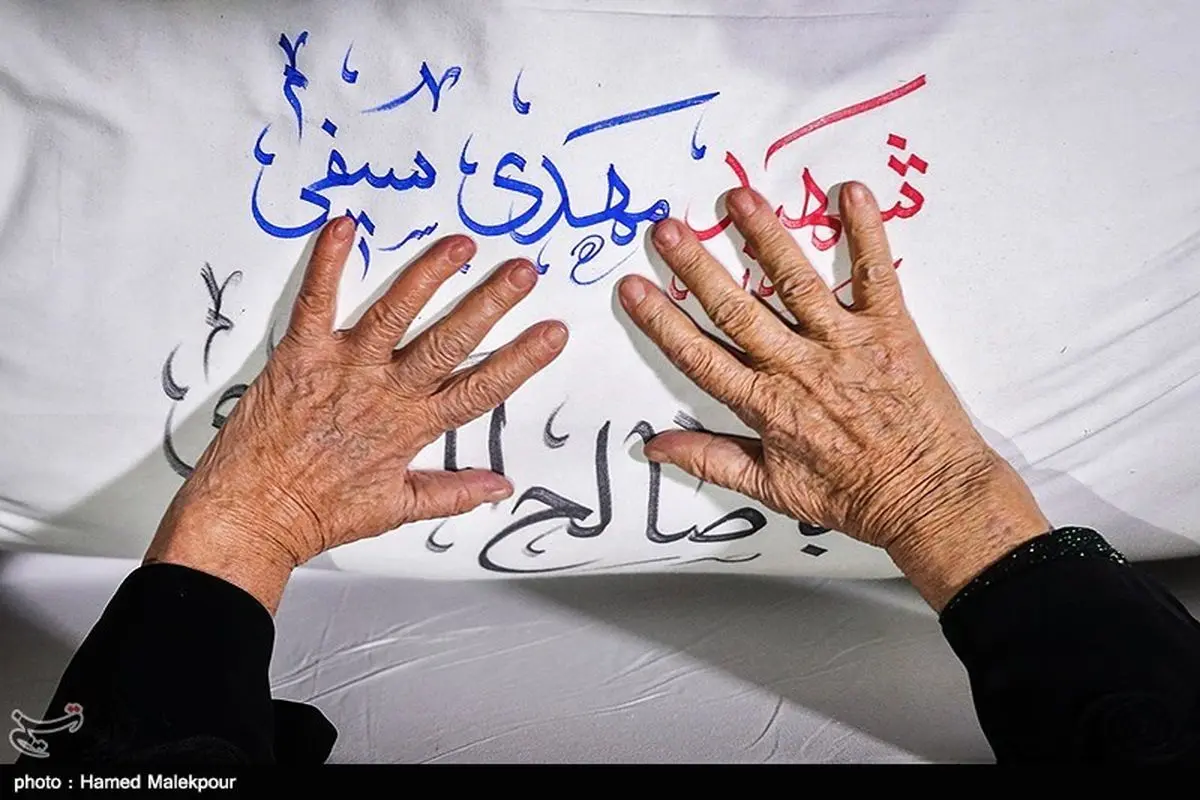 شهید مهدی سیفی
صالح
تسنیم
photo : Hamed Malekpour